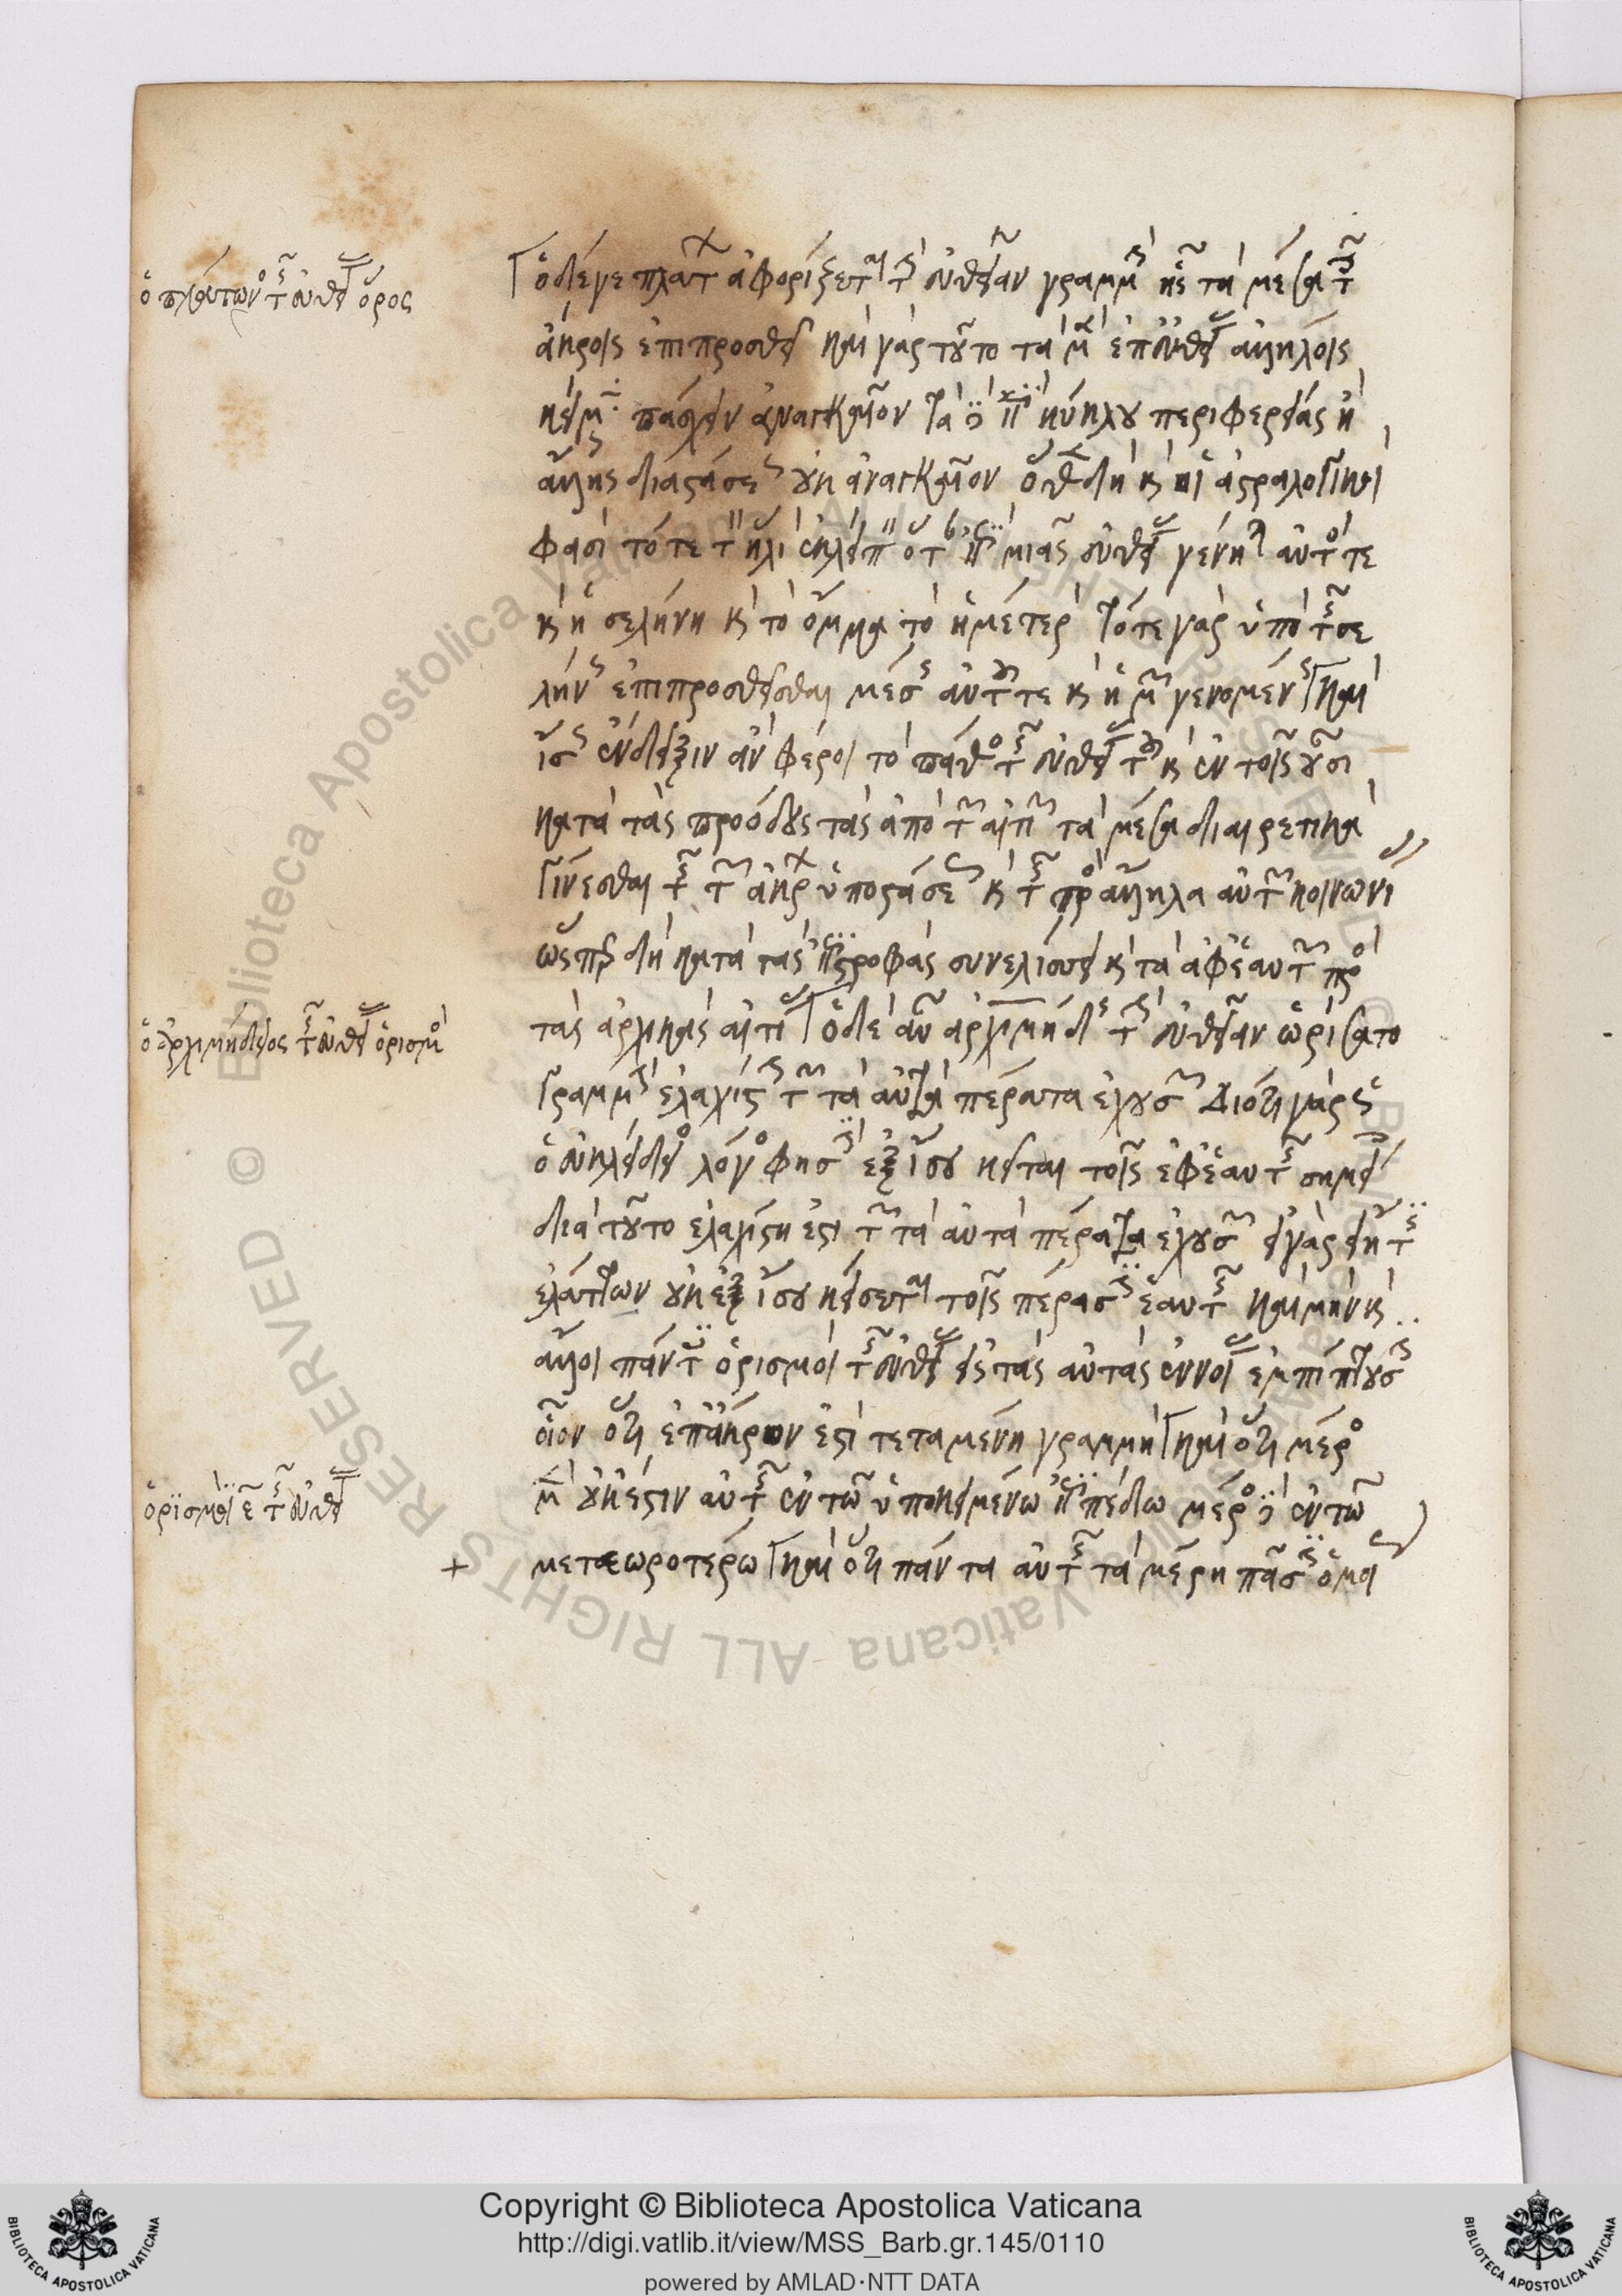 ὁ πλάτωνος τῆς εὐθείας ὅρος
ὁ δέ γε πλάτων ἀφορίζεται τὴν εὐθεῖαν γραμμὴν ἧς τὰ μέσα τοῖς
ἄκροις ἐπιπροσθεῖ καὶ γὰρ τοῦτο τὰ μὲν ἐπ' εὐθείας ἀλλήλοις
κείμενα πάσχειν ἀναγκαῖον τὰ δὲ ἐπὶ κύκλου περιφερείας ἢ
ἄλλης διαστάσεως οὐκ ἀναγκαῖον ὅθεν δὴ καὶ οἱ ἀστρολογικοί
φασι τότε τὸν ἥλιον ἐκλείπειν ὅταν ἐπὶ μιᾶς εὐθείας γένηται αὐτός τε
καὶ ἡ σελήνη καὶ τὸ ὄμμα τὸ ἡμέτερον τότε γὰρ ὑπὸ τῆς σε
λήνης ἐπιπροσθεῖσθαι μέσης αὐτοῦ τε καὶ ἡμῶν γενομένης καὶ
ἴσως ἔνδειξιν ἂν φέροι τὸ πάθος τῆς εὐθείας τοῦ καὶ ἐν τοῖς οὖσι
κατὰ τὰς προόδους τὰς ἀπὸ τῶν αἰτίων τὰ μέσα διαιρετικὰ
γίνεσθαι τῆς τῶν ἄκρων ὑποστάσεως καὶ τῆς πρὸς ἄλληλα αὐτῶν κοινωνίας
ὥσπερ δὴ κατὰ τὰς ἐπιστροφὰς συνελίσσει καὶ τὰ ἀφ' ἑαυτῶν πρὸς
τὰς ἀρχικὰς αἰτίας ὁ δὲ αὖ ἀρχιμήδης τὴν εὐθεῖαν ὡρίσατο
ὁ ἀρχιμήδειος τῆς εὐθείας ὁρισμός
γραμμὴν ἐλαχίστην τῶν τὰ αὐτὰ πέρατα ἐχουσῶν διότι γὰρ ὡς
ὁ εὐκλείδειος λόγος φησὶν ἐξ ἴσου κεῖται τοῖς ἐφ' ἑαυτῆς σημείοις
διὰ τοῦτο ἐλαχίστη ἐστι τῶν τὰ αὐτὰ πέρατα ἐχουσῶν εἰ γὰρ εἴη τις
ἐλάττων οὐκ ἐξ ἴσου κείσεται τοῖς πέρασιν ἑαυτῆς καὶ μὴν καὶ
ἄλλοι πάντες ὁρισμοὶ τῆς εὐθείας εἰς τὰς αὐτὰς ἐννοίας ἐμπίπτουσιν
οἷον ὅτι ἐπ' ἄκρον ἐστὶ τεταμένη γραμμὴ καὶ ὅτι μέρος
ὁρισμοὶ ε τῆς εὐθείας
μὲν οὐκ ἔστιν αὐτῆς ἐν τῶ ὑποκειμένω ἐπιπέδω μέρος δὲ ἐν τῶ
+ μετεωροτέρω καὶ ὅτι πάντα αὐτῆς τὰ μέρη πᾶσιν ὁμοίως
© Biblioteca Apostolica Vaticana ALL RIGHTS RESERVED
Copyright © Biblioteca Apostolica Vaticana
http://digi.vatlib.it/view/MSS_Barb.gr.145/0110
powered by AMLAD·NTT DATA
BIBLIOTECA APOSTOLICA VATICANA
BIBLIOTECA APOSTOLICA VATICANA